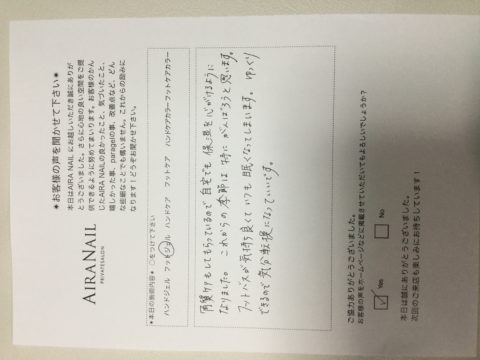 ＊お客様の声を聞かせて下さい＊
本日はAIRA NAIL にお越しいただき誠にありが
とうございました。さらに心地の良い空間をご提
供できるように努めてまいります。お客様のかん
じたAIRA NAILの良かったこと、気づいたこと、
嬉しかった事、paragelの事、改善点など、どん
な些細なことでも構いません。これからの励みに
なります！どうぞお聞かせ下さい。
AIRA NAIL
PRIVATESALON
＊本日の施術内容＊ ○をつけて下さい
ハンドジェル フットジェル ハンドケア フットケア ハンドケアカラー フットケアカラー
角質ケアもしてもらっているので 自宅でも 保湿を心がけるように
なりました。これからの季節は 特に がんばろうと思います。
フットバスが気持ち良くて いつも 眠くなってしまいます。 ゆっくり
できるので 気分転換になっていいです。
ご協力ありがとうございました。
お客様の声をホームページなどに掲載させていただいてもよろしいでしょうか？
Yes No
本日は誠にありがとうございました。
次回のご来店も楽しみにお待ちしています！